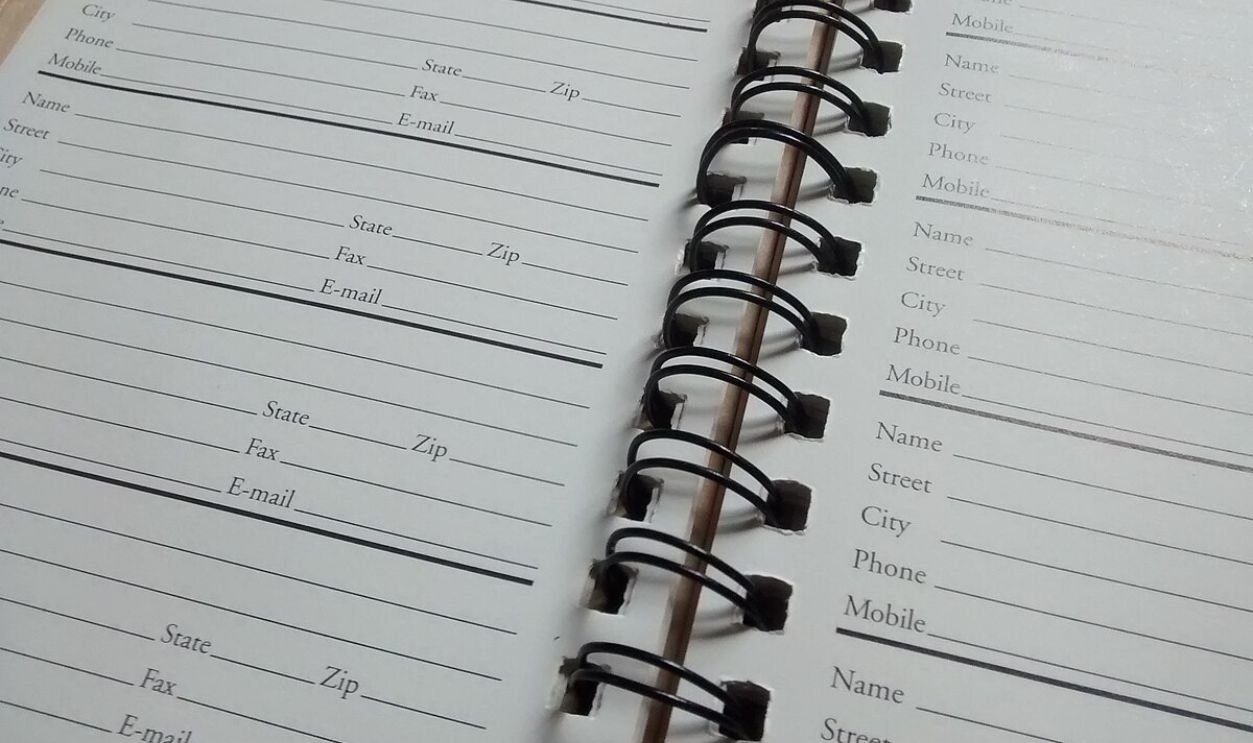 City
Phone State Zip
Mobile Fax
E-mail
Name
Street
State Zip
Fax
E-mail
State Zip
Fax
E-mail
State Zip
Fax
E-mail
Mobile
Name
Street
City
Phone
Mobile
Name
Street
City
Phone
Mobile
Name
Street
City
Phone
Mobile
Name
Street